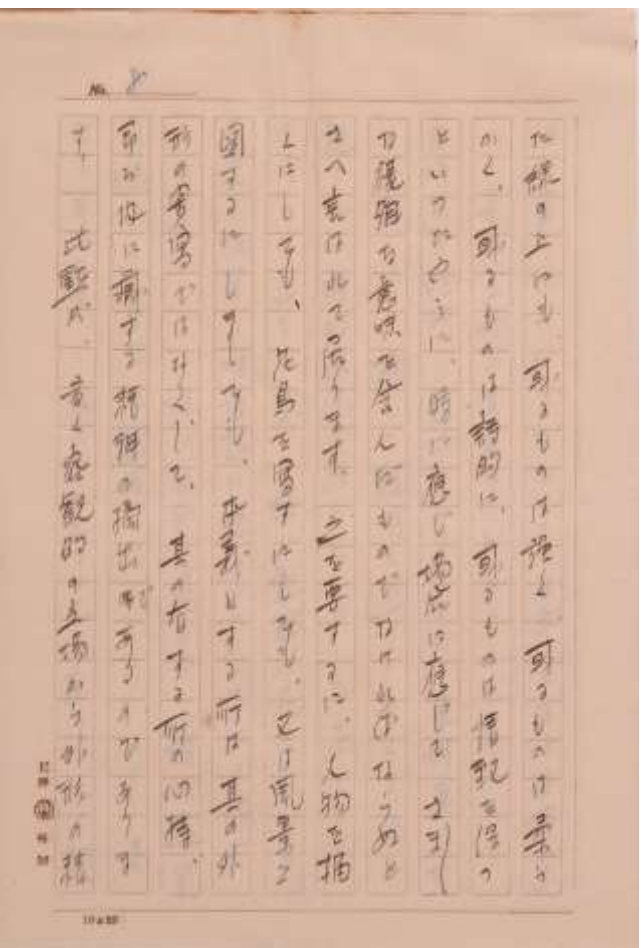 No. 8
た線の上にも 或るものは強く 或るものは柔ら
かく、或るものは詩的に、或るものは
といつたやうに、時に應じ場所に應じて
な意味を含んだものでなければならぬと
さへ言はれて居ります。之を要するに、人物を描
くにしても、花鳥を寫すにしても、又は風景を
圖するにしましても、本義とする所は其の外
形の寫ではなくして、其の存する所の心持、
即ち に藏する精神の摘出であるのでありま
す、此點が、 客觀的の立場から外形の
10×20